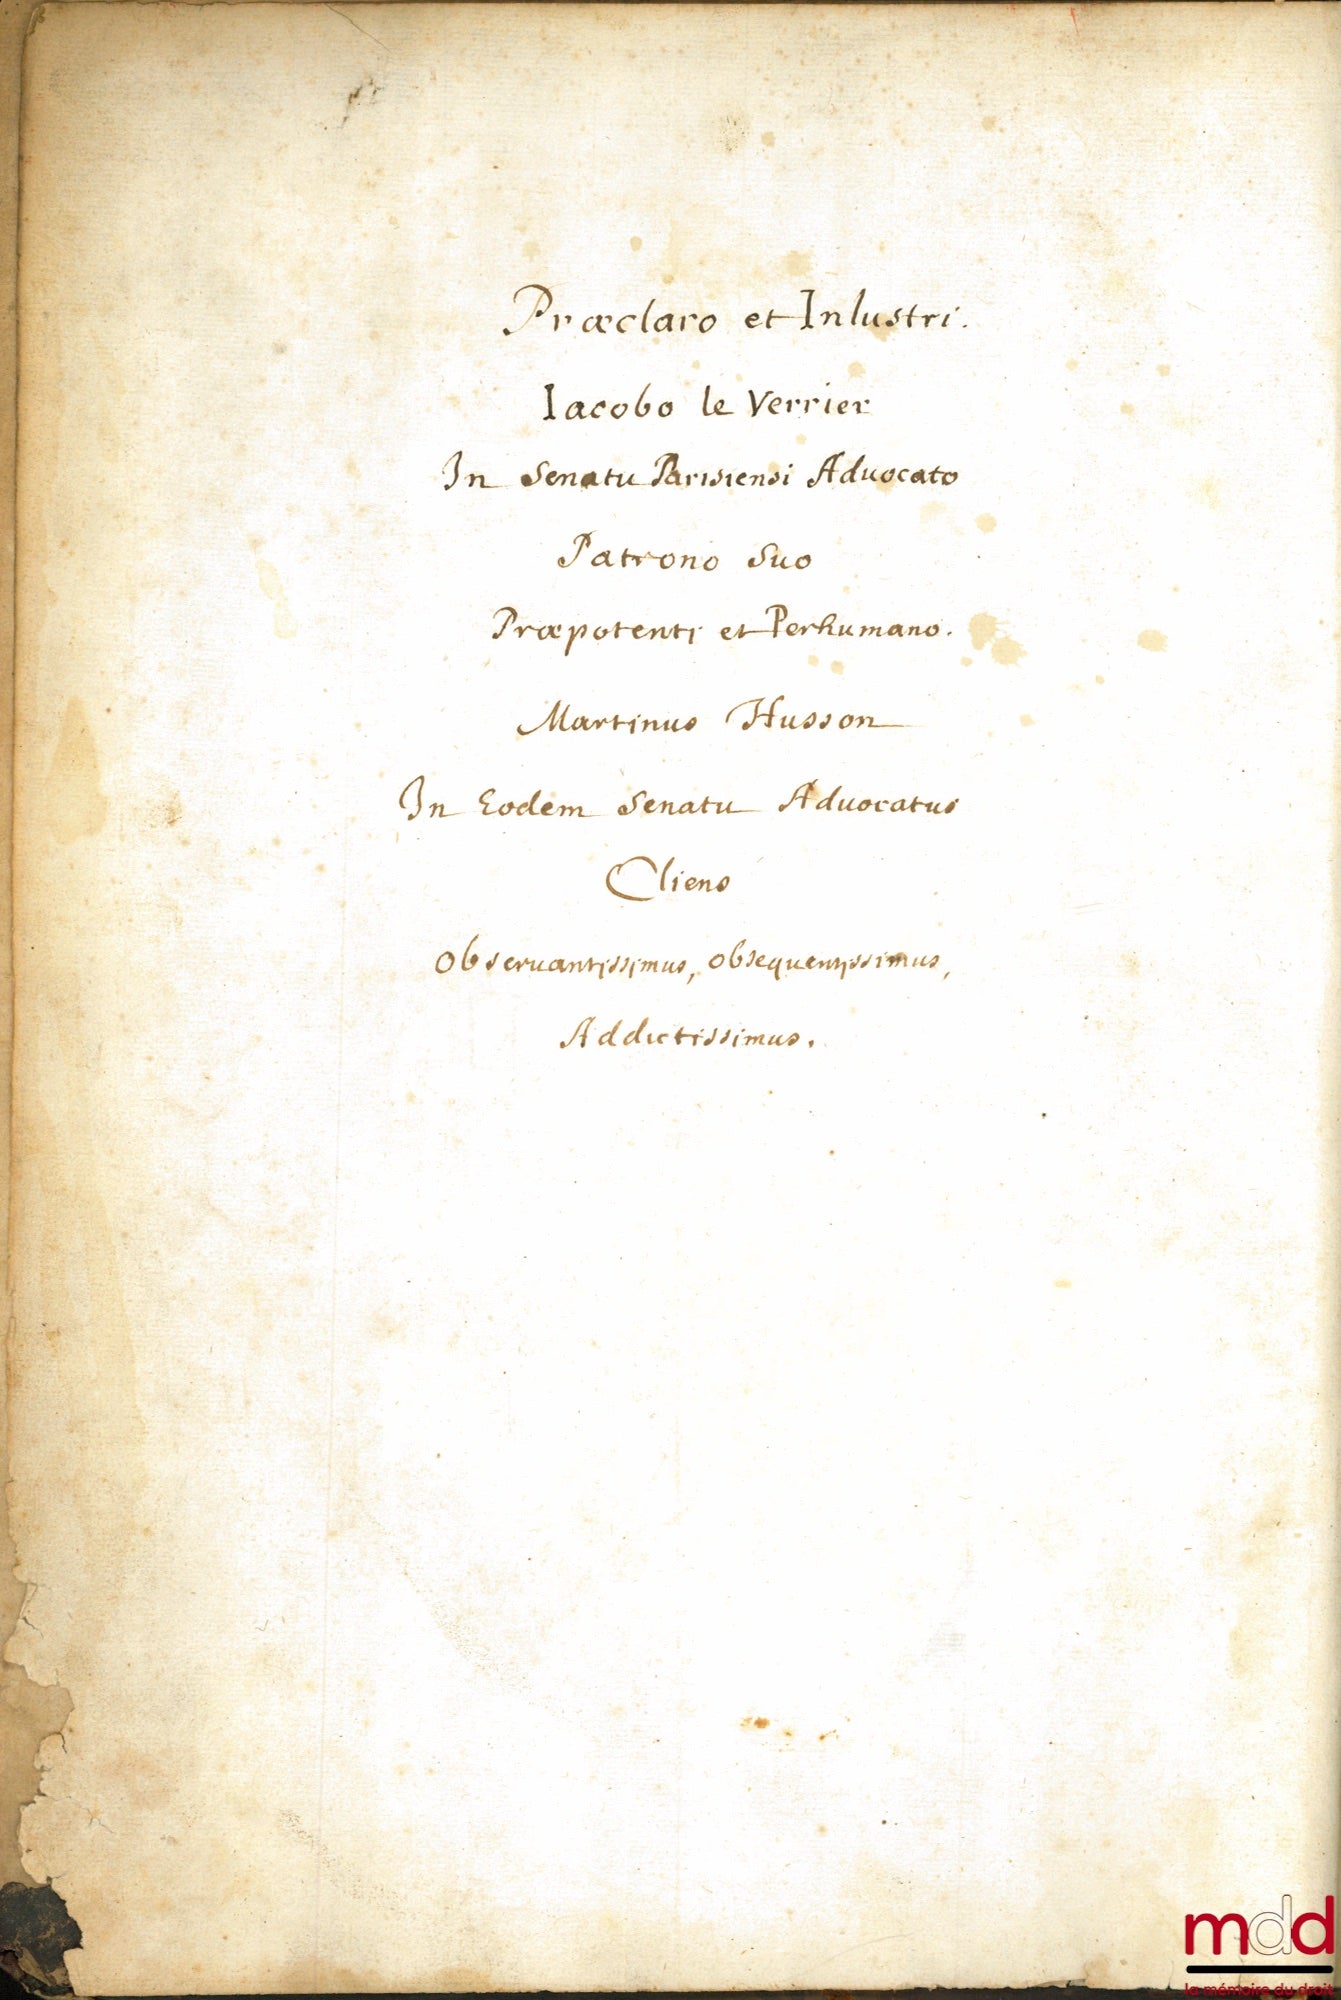 Præclaro et Inlustri.
Iacobo le Verrier
In Senatu Parisiensi Aduocato
Patrono Suo
Præpotenti et Perhumano.
Martinus Husson
In Eodem Senatu Aduocatus
Cliens
Obseruantissimus, obsequentissimus,
Addictissimus.
mdd
la mémoire du droit